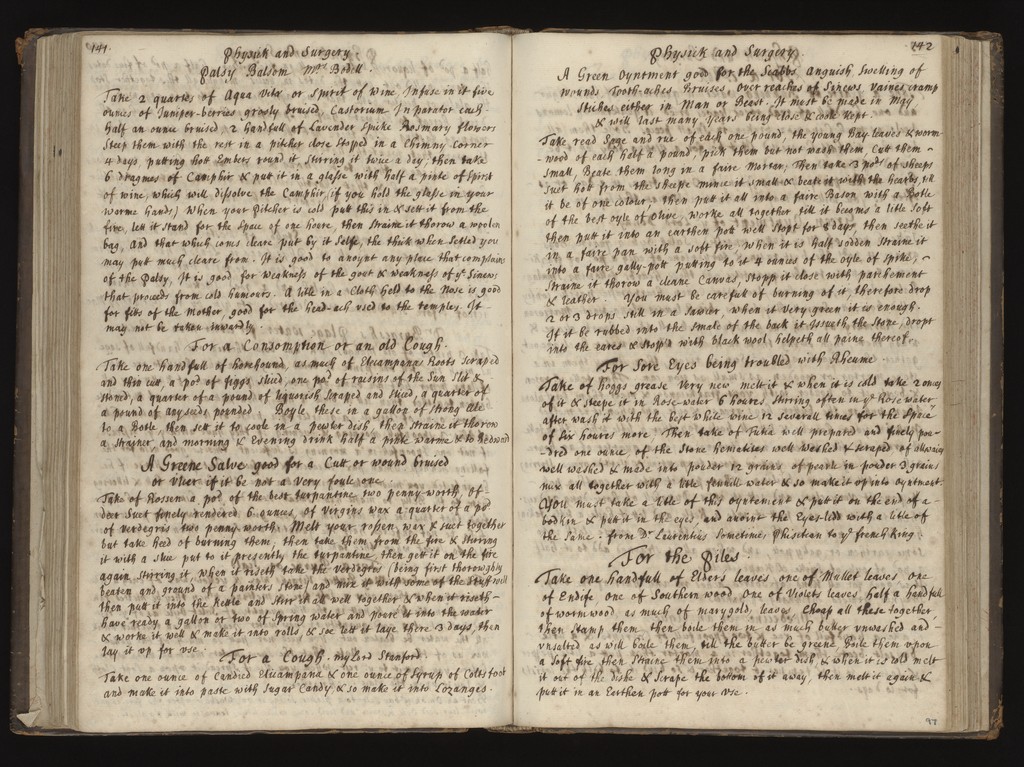 141.
Physick and Surgery.
Palsy Balsom Mrs. Bodell.
Take 2 quartes of Aqua vitæ or Spirit of wine Infuse in it five
ounces of Juniper-berries grosly bruised, Castorium In porator each
half an ounce bruised 2 handfull of Lavender Spike Rosmary flowers
Steep them with the rest in a pitcher close stoped in a Chimny Corner
4 days putting hott Embers round it, Stirring it twice a day; then take
6 dragmes of Camphir & put it in a glasse with half a pinte of Spirit
of wine, which will dissolve the Camphir, if you hold the glasse in your
warme hands) When your Pitcher is cold put this in & sett it from the
fire, lett it stand for the space of one houre, then straine it thorow a woolen
bag, and that which coms cleare put by it Selfe, the thick when Setled you
may put much cleare from. It is good to anoynt any place that complains
of the Palsy, It is good for weakness of the gout & weakness of ye Sinews
that proceeds from cold humours. A litle in a Cloth held to the Nose is good
for fitts of the Mother, good for the head-ach used to the temples. It
may not be taken inwardly.
For a Consomption or an old Cough.
Take one handfull of horehound, as much of Elicampana Roots scraped
and thin cutt, a pod of figgs sliced, one pod of raisins of the Sun Slit &
stoned, a quarter of a pound of liquorish scraped and sliced, a quarter of
a pound of anyseeds pounded Boyle these in a gallon of strong Ale
to a Botle, then sett it to coole in a pewter dish then straine it thorow
a strainer, and morning & Evening drink half a pinte warme & to Bedward
A Greene Salve good for a Cutt or wound bruised
or Ulcer if it be not a very foule one
Take of Rossem a pod. of the best turpantine two penny-worth of
deer Suet finely rendered 6 ounces of virgins wax a quarter of a pod
of verdegris two penny worth. Melt your rossen, wax & suet together
but take heed of burning them, then take them from the fire & stirring
it with a slice put to it presently the turpantine, then gett it on the fire
again Stirring it, when it riseth take the verdegris (being first thoroughly
beaten and ground of a painters Stone) and mixe it with some of the stuff well
then putt it into the kettle and stirr it all well together & when it riseth-
have ready a gallon or two of Spring water and poure it into the water
& worke it well & make it into rolls, & soe lett it laye there 3 days, then
lay it up for use.
For a Cough. my Lord Stanford.
Take one ounce of Candied Elicampana & one ounce of Syrup of Colts foot
and make it into paste with Sugar Candy, & so make it into Lozanges.
142
Physick and Surgery.
A Green Oyntment good for the Scabbs Anguish Swelling of
wounds Tooth-aches, Bruises, Over reaches of Sinews vaines cramp
Stiches either in Man or Beast. It must be made in May
& will last many years being close & cook kept.
Take read Sage and rue of each one pound, the young Bay leaves & worm
-wood of each half a pound, pick them but not wash them cutt them ~
small, Beate them long in a faire Morter, Then take 3 pod of sheeps
suit hot from the sheepe mince it small & beate it with the hearbs, till
it be of one colour, then put it all into a faire Bason with a Botle
of the best oyle of Olive, worke all together till it becoms a litle soft
then putt it into an earthen pott well stopt for 8 days, then seethe it
in a faire pan with a soft fire, when it is half sodden straine it
into a faire gally-pott putting to it 4 ounces of the oyle of spike, ~
straine it thorow a cleane Canvas, stopp it close with parchement
& leather. You must be carefull of burning of it, therefore drop
2 or 3 drops still in a sawcer, when it very green it is enough.
If it be rubbed into the smale of the back it Issueth, the stone, dropt
into the eares & stopd with black wool, helpeth all paine thereof.
For Sore Eyes being troubled with Rheume.
Take of hoggs grease very new melt it & when it is cold take 2 ounces
of it & steepe it in Rose-water 6 houres stirring often in ye Rose water
after wash it with the best white wine 12 severall times for the space
of six houres more. Then take of Tutie well prepared and finely pou-
-dred one ounce of the Stone hematites well washed & scraped of allwaies
well weshed & made into powder 12 grains, of pearle in pouder 3 grains
mix all together with a litle fennill water & so make it up into oyntment.
You must take a litle of this oyntement & put it on the end of a-
bodkin & put it in the eyes, and anoint the Eyes-lids with a litle of
the Same. from Dr Leurentius sometimes Phisetian to ye french King.
For the Piles.
Take one handfull of Elders leaves one of Mullet leaves one
of Endife one of Southernwood, one of Violets leaves half a handfull
of wormwood as much of marygold, leaves, Choap all these together
then stamp them, then boile them in as much butter unwashed and -
unsalted as will boile them, till the butter be greene Boile them upon
a soft fire then straine them into a pewter dish, & when it is cold melt
it out of the dishe & scrape the bottom of it away, then melt it again &
putt it in an Earthen pott for your Use.
97